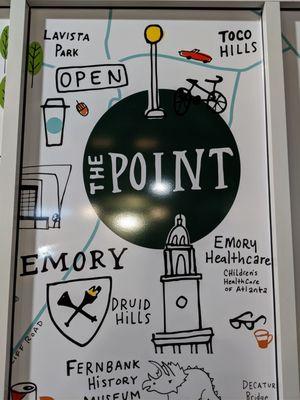 LAVISTA
PARK
TOCO
HILLS
OPEN
THE POINT
EMORY
EMORY
HEALTHCARE
CHILDREN'S
HEALTHCARE
OF ATLANTA
DRUID
HILLS
FERNBANK
HISTORY
MUSEUM
DECATUR
ROAD